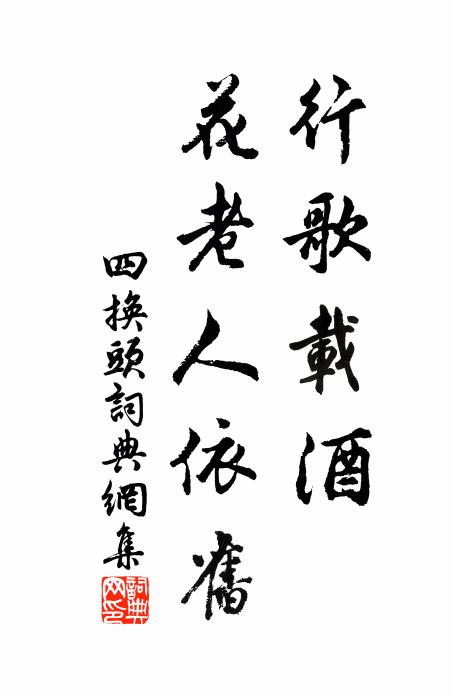 行歌載酒
花老人依舊
四換頭詞典網集
詞典网印